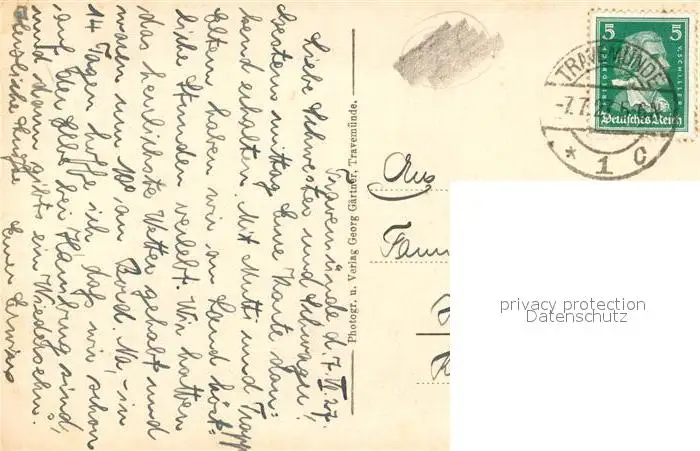 Travemünde d. 7. VII. 27.
Liebe Schwester und Schwager!
Gestern mittag Eure Karte dan-
kend erhalten. Mit Mutti und Trapp
Eltern haben wir an Land köst-
liche Stunden verlebt. Wir hatten
das herlichste Wetter gehabt und
waren um 10° an Bord. Na, in
14 Tagen hoffe ich, daß wir schon
auf der Elbe bei Hamburg sind,
und dann gibts ein Wiedersehn.
Herzliche Grüße Euer Erwin
Photogr. u. Verlag Georg Gärtner, Travemünde.
5 5
FRIEDRICH V. SCHILLER
Deutsches Reich
TRAVEMÜNDE
-7.7.27
* 1 C
Aus
Fam
privacy protection
Datenschutz